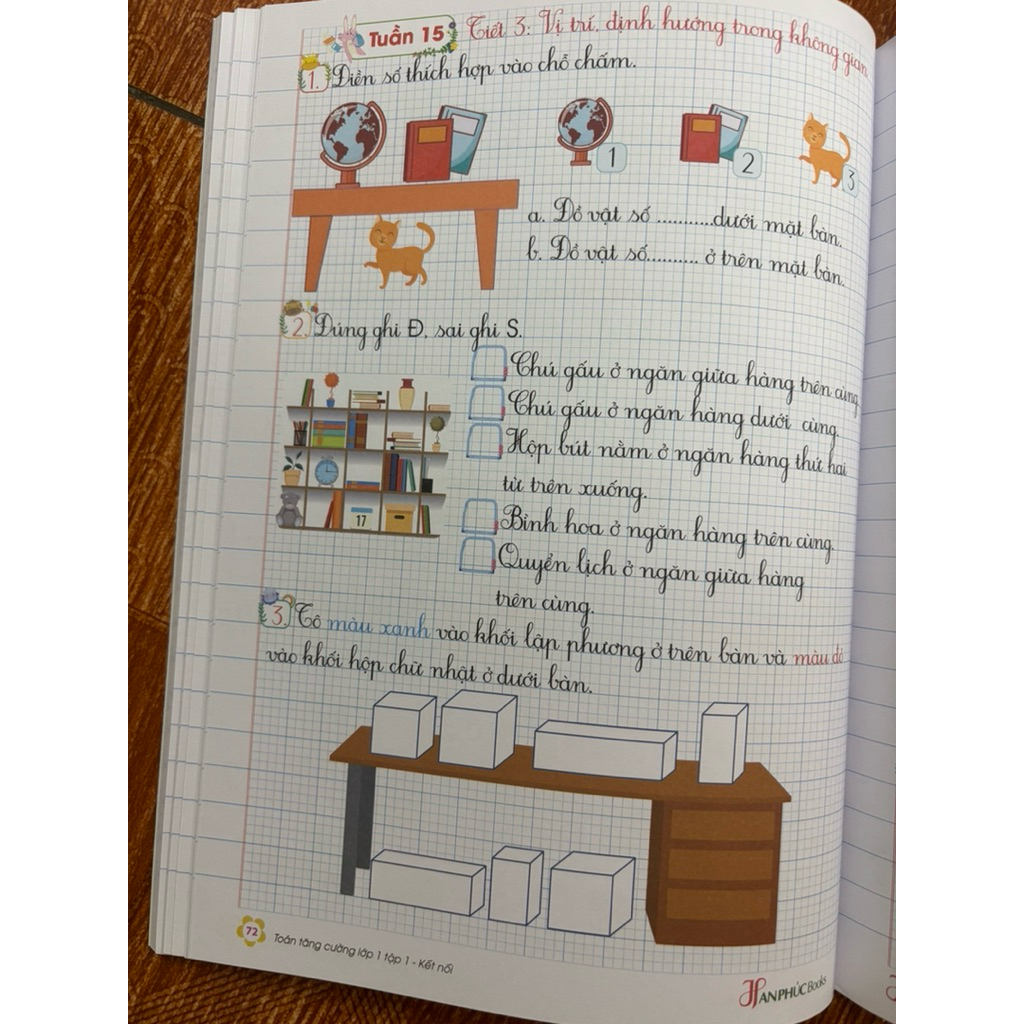 Tuần 15 Tiết 3: Vị trí, định hướng trong không gian
1. Điền số thích hợp vào chỗ chấm.
1
2
3
a. Đồ vật số ...........dưới mặt bàn.
b. Đồ vật số.......... ở trên mặt bàn.
2. Đúng ghi Đ, sai ghi S.
Chú gấu ở ngăn giữa hàng trên cùng
Chú gấu ở ngăn hàng dưới cùng.
Hộp bút nằm ở ngăn hàng thứ hai
từ trên xuống.
Bình hoa ở ngăn hàng trên cùng.
Quyển lịch ở ngăn giữa hàng
trên cùng.
17
3. Tô màu xanh vào khối lập phương ở trên bàn và màu đỏ
vào khối hộp chữ nhật ở dưới bàn.
72 Toán tăng cường lớp 1 tập 1 - Kết nối
ANPHÚC Books